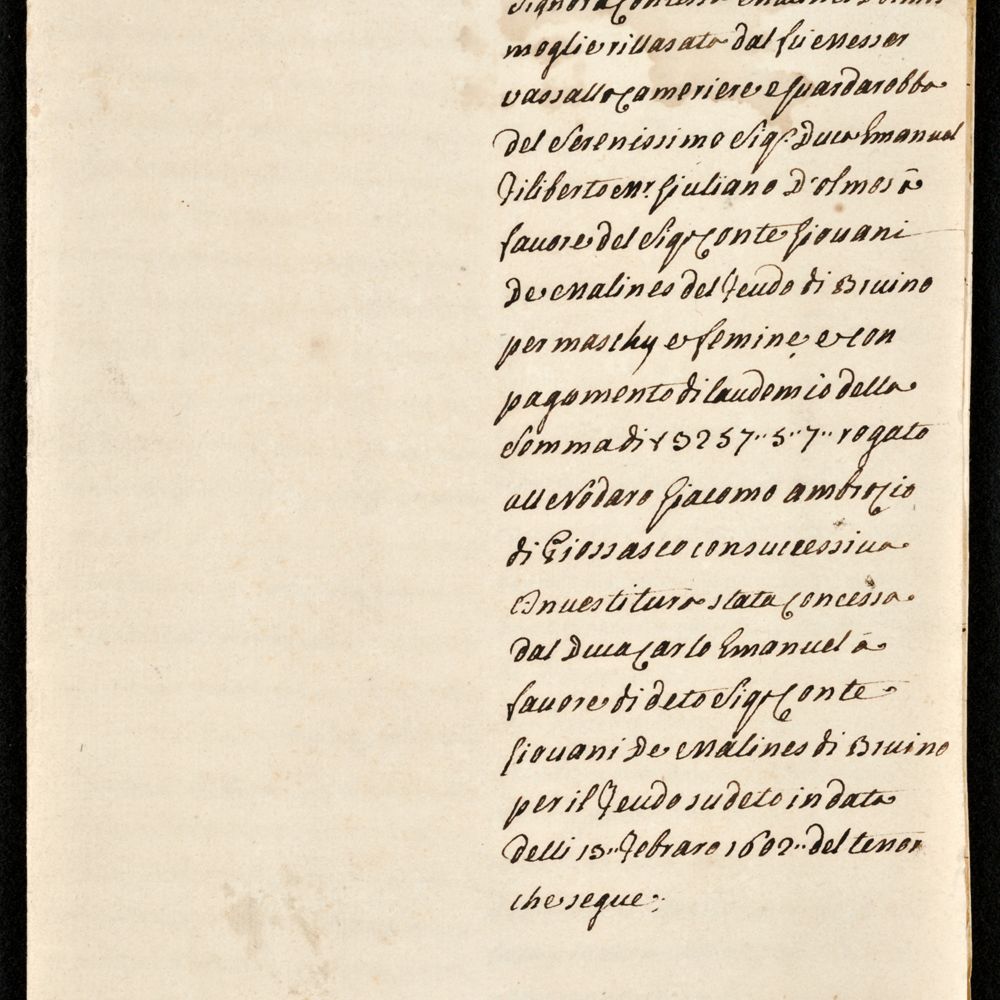 Signora Contessa
moglie rillasato dal fù Messer
vassallo Cameriere e Guardarobba
del Serenissimo Sigr. Duca Emanuel
Filiberto Mr. Giuliano D'olmos à
favore del Sigr Conte Giouani
De Malines del Feudo di Bruino
per maschy e femine, e con
pagamento di laudemio della
Somma di 3257.. 5.. 7.. rogato
all Nodaro Giacomo ambrozio
di Giossasco con successiva
Inuestitura stata Concessa
dal Duca Carlo Emanuel à
fauore di deto Sigr Conte
Giouani De Malines di Bruino
per il Feudo sudeto in data
delli 13.. Febraro 1602.. del tenor
che segue: